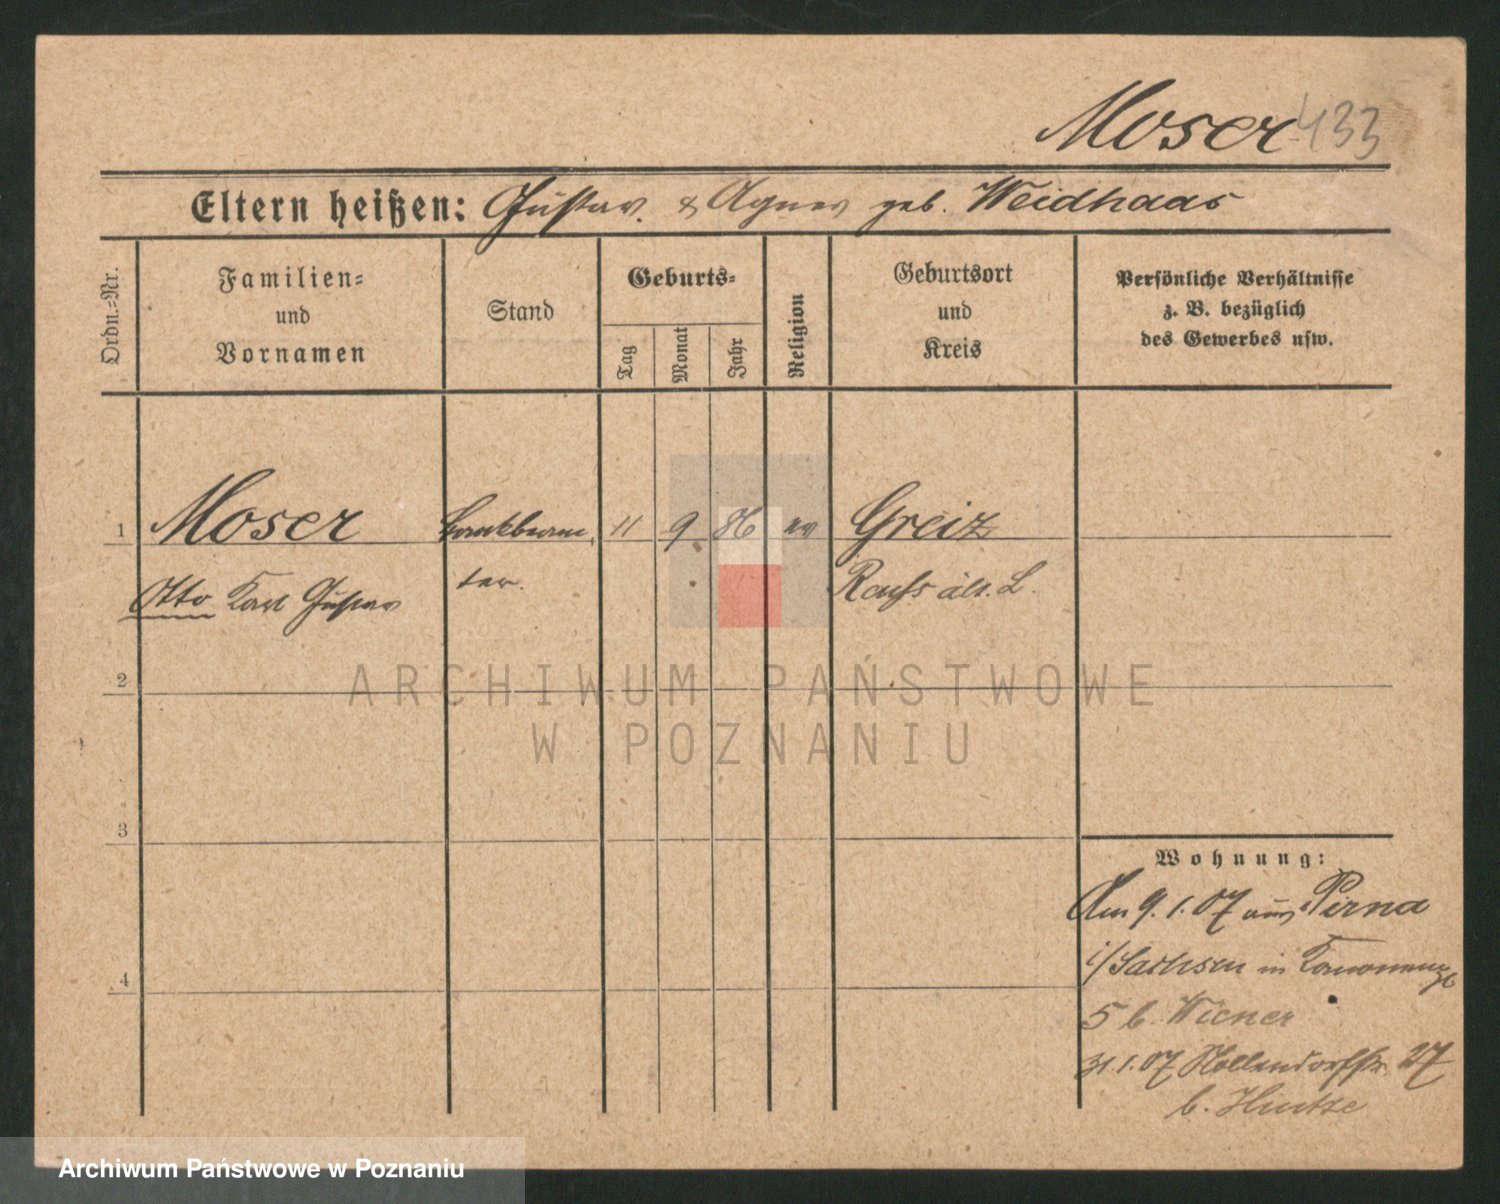 Moser 433
Eltern heißen: Gustav & Agnes geb. Weidhaas
Ordn.=Nr.
Familien=
und
Vornamen
Stand
Geburts=
Tag
Monat
Jahr
Religion
Geburtsort
und
Kreis
Persönliche Verhältnisse
z. B. bezüglich
des Gewerbes usw.
1 Moser Bankbeam 11 9 86 ev Greiz
Otto Karl Gustav ter. Reuss ält. L.
2
ARCHIWUM PAŃSTWOWE
W POZNANIU
3
Wohnung:
Am 9.1.07 aus Pirna
i/Sachsen in
4
5 b. Wiener
31.1.07 Nollendorfstr. 27
b. Hintze
Archiwum Państwowe w Poznaniu